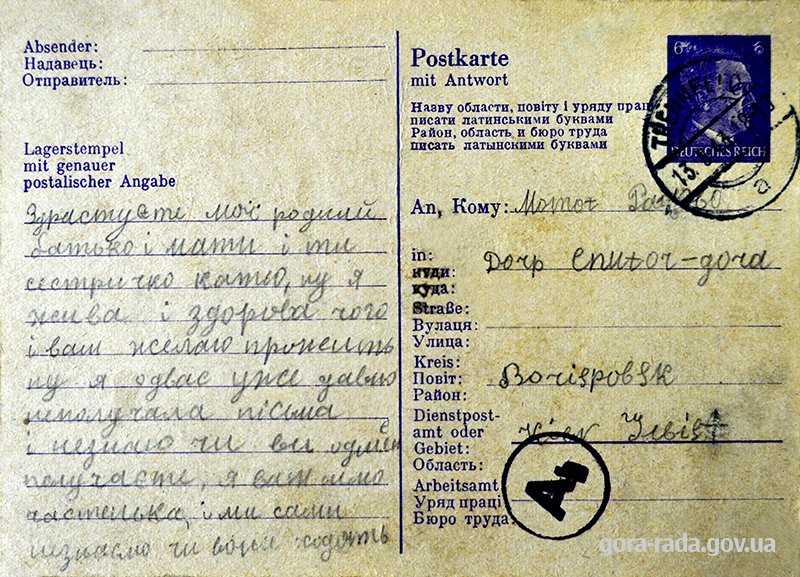 Absender:
Надавець:
Отправитель:
Lagerstempel
mit genauer
postalischer Angabe
Здрастуєте мої родилі
батько і мати і ти
сестричко катю, ну я
жива і здорова чого
і вам желаю прожить
ну я одвас уже давно
неполучала пісьма
і незнаю чи ви одмен
получаєте, я вам
частенько і ми сами
незнаємо чи вони ходять
Postkarte
mit Antwort
Назву области, повіту і уряду праці
писати латинськими буквами
Район, область и бюро труда
писать латынскими буквами
6 6
DEUTSCHES REICH
An, Кому: Momot
in: Dorp Cnutor-gora
куди:
куда:
Straße:
Вулаця:
Улица:
Kreis:
Повіт: Borispobsk
Район:
Dienstpost-
amt oder Kiev
Gebiet:
Область:
Arbeitsamt
Уряд праці
Бюро труда:
gora-rada.gov.ua